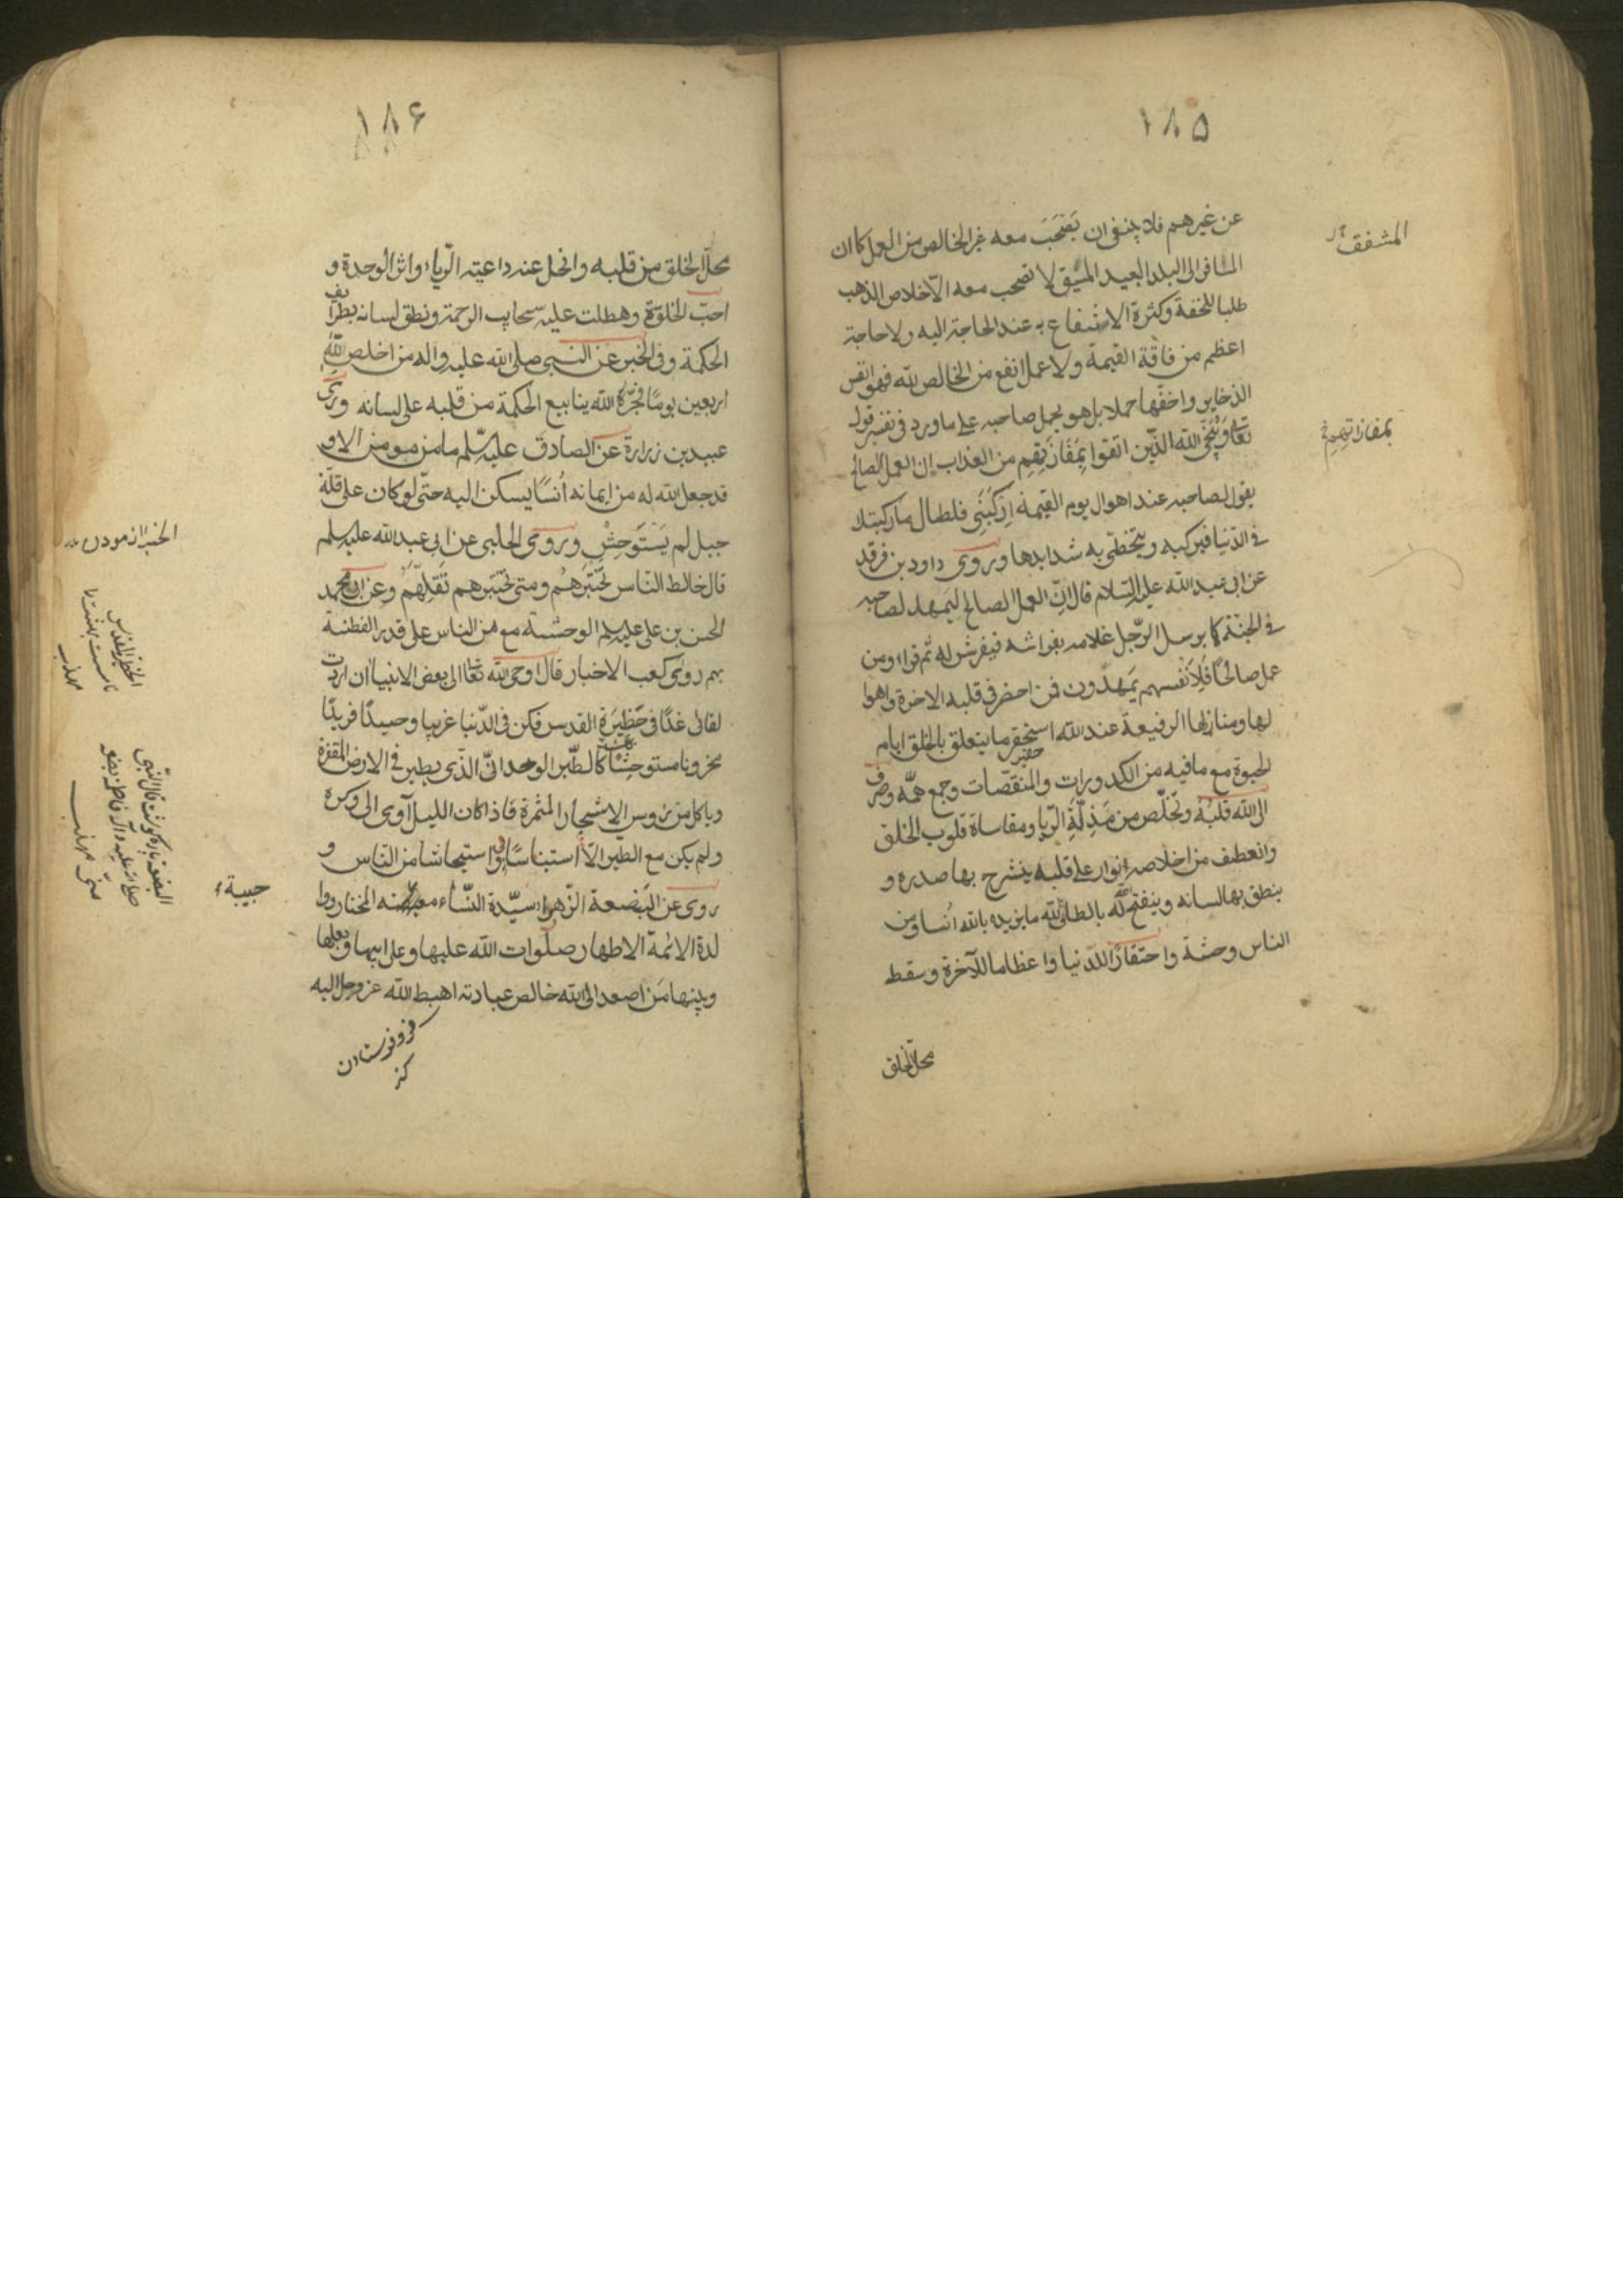 ١٨٥
عن غيرهم فلا ينبغى ان يصحب معه غير الخالص من العمل كما ان
المسافر الى البلد البعيد المشيق لا تصحب معه الّا خلاص الذهب
طلبا للخفة وكثرة الانتفاع به عند الحاجة اليه ولا حاجة
اعظم من فاقة القيمة ولا عمل انفع من الخالص لله فهو انفس
الذخاير واخفها حملا بل هو يحمل صاحبه على ما ورد فى تفسير قوله
تعالى وَيُنَجِّى الله الذين اتقوا بِمَفَازَتِهِم من العذاب ان العمل الصالح
يقول لصاحبه عند اهوال يوم القيمة اِرْكَبْنِى فلطال ما ركبتك
فى الدّنيا فيركبه ويتخطى به شدايدها وروى داود بن فرقد
عن ابى عبد الله عليه السلام قال انّ العمل الصالح ليمهد لصاحبه
فى الجنّة كما يرسل الرّجل غلامه بفراشه فيفرش له ثم قراء ومن
عمل صالحًا فَلِاَنْفُسِهِم يَمهَدُون فمن احضر فى قلبه الاخرة واهوا
لها ومنازلها الرفيعة عند الله استحقر ما يتعلق بالخلق ايام
الحيوة مع ما فيه من الكدورات والمنقصات وجمع همّه وصرف
الى الله قلبَهُ وتخلّص من مَذِلَّةِ الرّيا ومقاساة قلوب الخلق
وانعطف من اخلاصه انوار على قلبه ينشرح بها صدره و
ينطق بها لسانه وينفتح له بالطاف الله ما يزيده بالله انسا ومن
الناس وحشة واحتقارًا للدّنيا واعظاما للآخرة وسقط
محلّ الخلق
المشفق
بمفازاتهم
١٨٦
محلّ الخلق من قلبه وانحل عنه داعية الرّياء واثر الوحدة و
احبّ الخلوة وهطلت عليه سحايب الرحمة ونطق لسانه بطرايف
الحكمة وفى الخبر عن النبى صلى الله عليه واله من اخلص لِلّهِ
اربعين يومًا فجّر الله ينابيع الحكمة من قلبه على لسانه وروى
عبيد بن زرارة عن الصادق عليه السّلم ما من مومن الا و
قد جعل الله له من ايمانه اُنسًا يسكن اليه حتّى لو كان على قلّة
جبل لم يَسْتَوحِشْ وروى الحلبى عن ابى عبد الله عليه سلم
قال خالط النّاس تَخْتَبِرهُم ومتى تختبرهم تَقْلِهِم وعن ابى محمد
الحسن بن على عليه سلم الوحشة مع من الناس على قدر الفطنة
بهم روى كعب الاخبار قال اوحى الله تعالى الى بعض الانبيا ان اردت
لقائى غدًا فى حَظِيرَةِ القدس فكن فى الدّنيا غريبا وحيدًا فريدًا
محزونا مستوحِشًا كالطّير الوحدانىّ الذّى يطير فى الارض المقفرة
وياكل من رؤس الاشجار المثمرة فاذا كان الليل آوى الى وكره
ولم يكن مع الطّير الّا استيناسًا واستيحاشا من النّاس و
روى عن البَضعة الزّهراء سيّدة النّساء المختار ووا
لدة الائمّة الاطهار صلوات الله عليها وعلى ابيها وبعلها
وبنيها مَن اصعد الى الله خالص عبادته اهبط الله عز وجل اليه
فروفرستادن
كنز
حبيبة